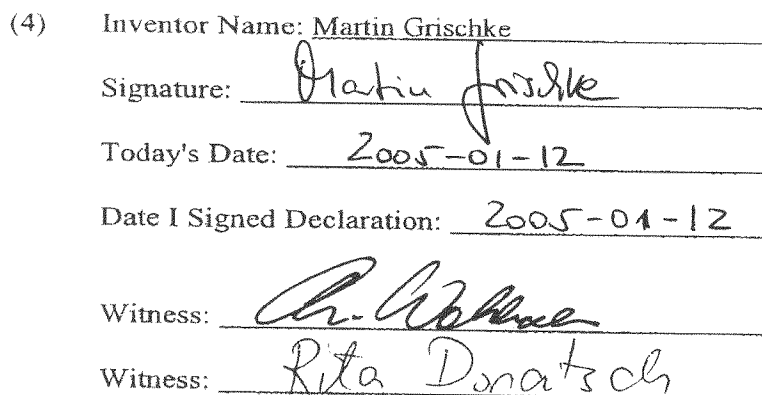 (4) Inventor Name: Martin Grischke
Signature: Martin Grischke
Today's Date: 2005-01-12
Date I Signed Declaration: 2005-01-12
Witness: Ch.
Witness: Rita Donatsch